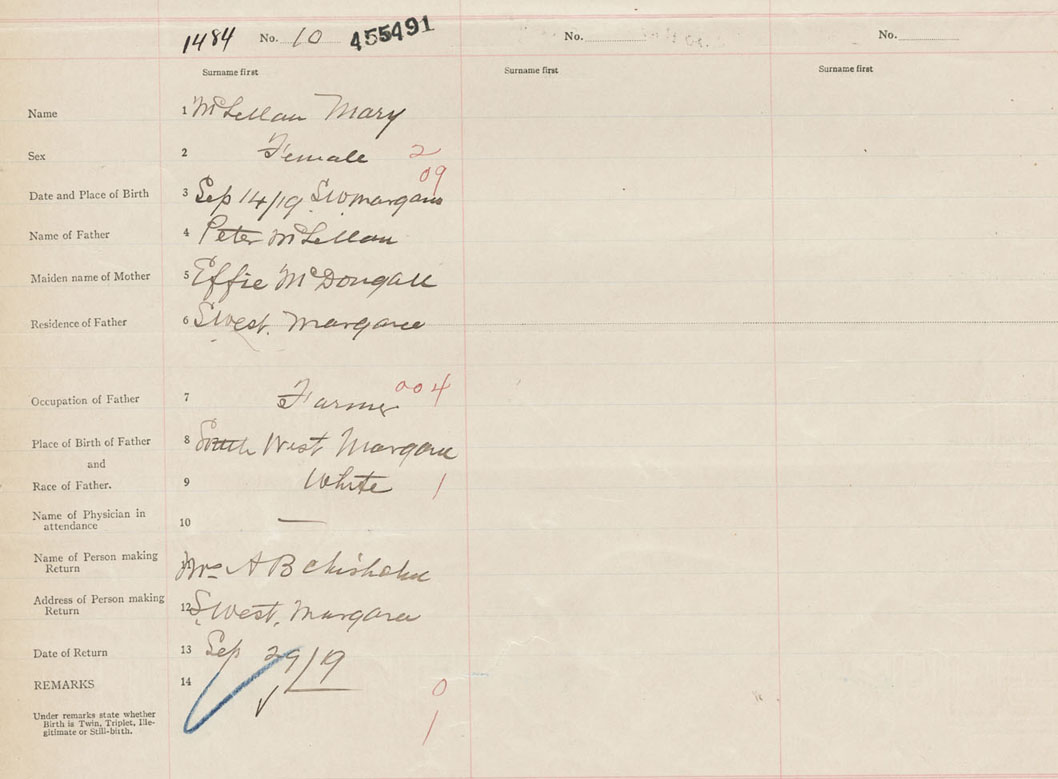 1484 No. 10 455491 No. No.
Surname first Surname first Surname first
Name 1 McLellan Mary
Sex 2 Female 2
09
Date and Place of Birth 3 Sep 14/19 S W Margaree
Name of Father 4 Peter McLellan
Maiden name of Mother 5 Effie McDougall
Residence of Father 6 S West. Margaree
Occupation of Father 7 Farmer 004
Place of Birth of Father 8 South West Margaree
and
Race of Father. 9 White 1
Name of Physician in
attendance 10 —
Name of Person making
Return Mrs A B Chisholm
Address of Person making
Return 12 S West, Margaree
Date of Return 13 Sep 29/19
REMARKS 14
0
Under remarks state whether
Birth is Twin, Triplet, Ille-
gitimate or Still-birth. 1